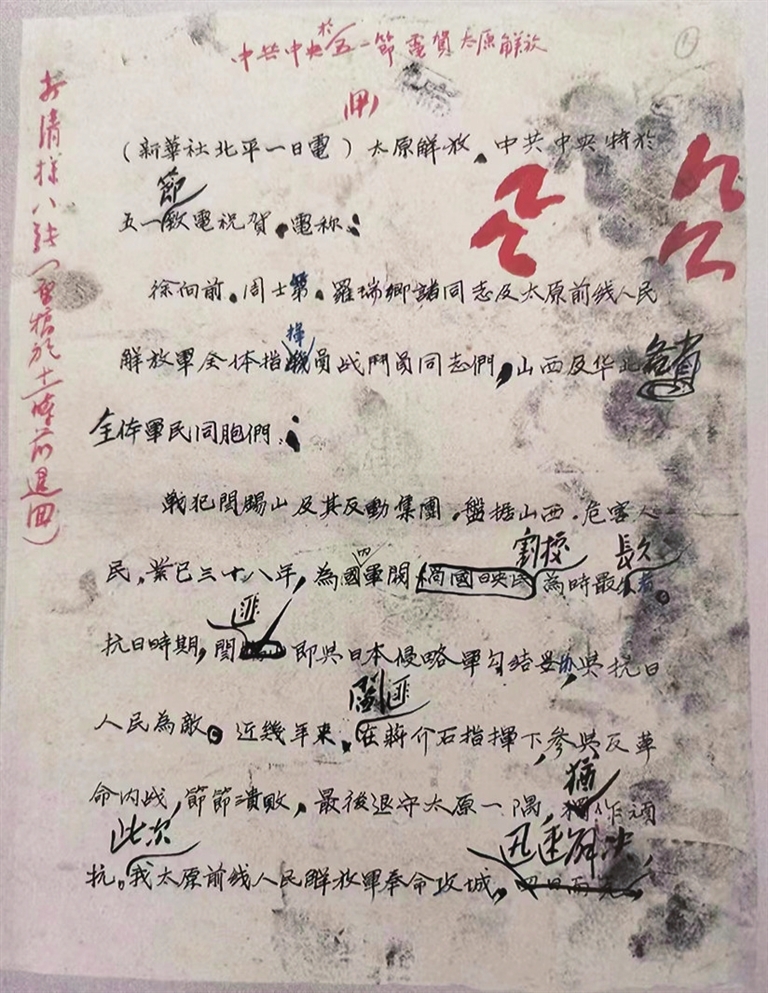 中共中央於五一節電賀太原解放
(新華社北平一日電)太原解放,中共中央特於
五一節致電祝賀。電称:
徐向前、周士第、羅瑞卿諸同志及太原前线人民
解放軍全体指揮員战鬥員同志們,山西及华北
全体軍民同胞們:
戰犯閻錫山及其反動集團,盤据山西,危害人
民,業已三十八年,為國軍閥禍國殃民割據為時最長久者。
抗日時期,閻匪即與日本侵略軍勾结妥协,與抗日
人民為敵。近幾年來,閻匪在蔣介石指揮下,參與反革
命内战,節節潰敗,最後退守太原一隅,猶作頑
抗。此次我太原前线人民解放軍奉命攻城,迅速解决,
打清樣八張(
於十二時前退回)